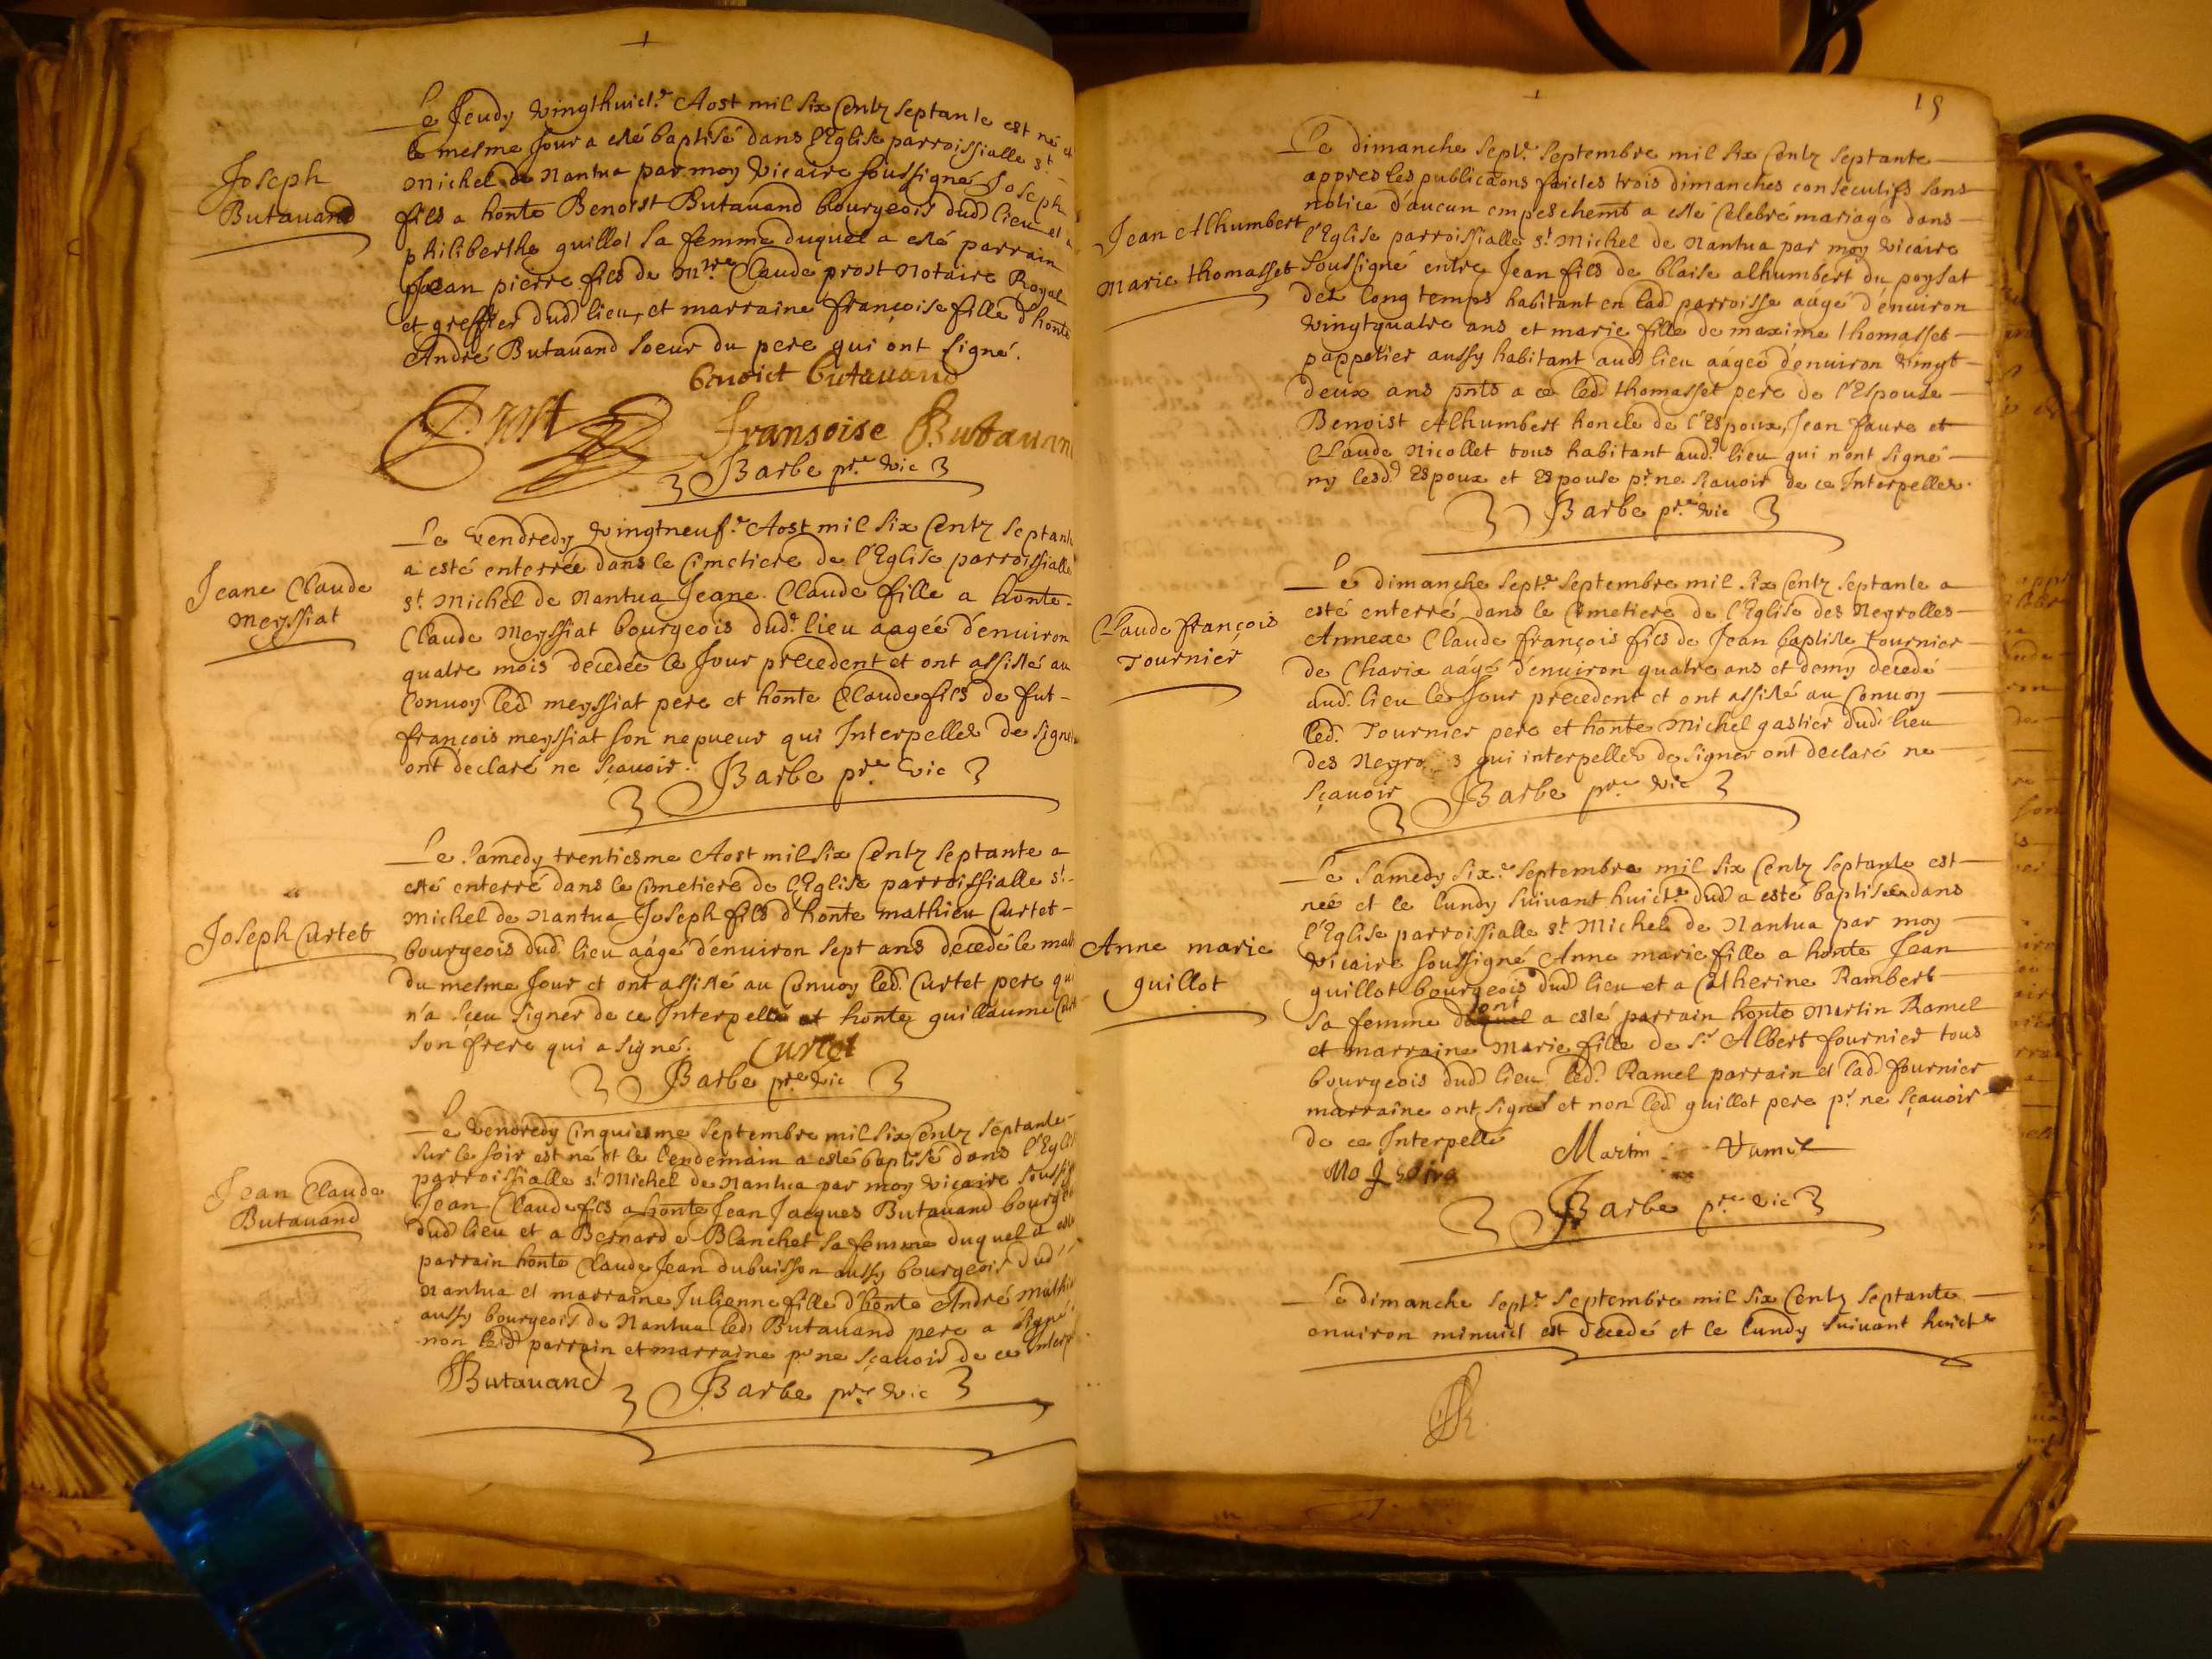 Le Jeudy vingthuict.e Aost mil six Centz septante est né et
le mesme Jour a esté baptisé dans l'Eglise parroissialle s.t
Joseph
Butauand
michel de nantua par moy vicaire soussigné Joseph
fils a honte Benoist Butauand bourgeois dud lieu et a
philiberthe guillot sa femme duquel a esté parrain
Jean pierre fils de m.re Claude prost notaire Royal
et greffier dud lieu, et marraine françoise fille d'honte
André Butauand soeur du pere qui ont signé.
benoict butauand
Fransoise Butauan
Barbe pr.e vic
Le vendredy vingtneuf.e Aost mil six Centz septante
a esté enterrée dans le Cimetiere de l'Eglise parroissialle
Jeane Claude
meyssiat
s.t Michel de nantua Jeane Claude fille a honte
Claude meyssiat bourgeois dud. lieu aagée d'enuiron
quatre mois decedée le Jour precedent et ont assisté au
Conuoy led meyssiat pere et honte Claude fils de fut
françois meyssiat son nepueur qui Interpellez de signer
ont declaré ne sçauoir. Barbe pr.e vic
Le samedy trentiesme Aost mil six Centz septante a
esté enterré dans le Cimetiere de l'Eglise parroissialle s.t
Joseph Curtet
michel de nantua Joseph fils d'honte mathieu Curtet
bourgeois dud. lieu aagé d'enuiron sept ans decedé le mat
du mesme Jour et ont assisté au Conuoy led. Curtet pere qui
n'a sçeu signer de ce Interpellé et honte guillaume Curt
son frere qui a signé. Curtet
Barbe pr.e vic
Le vendredy Cinquiesme septembre mil six Centz septante
sur le soir est né et le lendemain a esté baptisé dans l'Eglis
Jean Claude
Butauand
parroissialle s.t Michel de nantua par moy vicaire soussig
Jean Claude fils a honte Jean Jacques Butauand bourge
dud lieu et a Bernarde Blanchet sa femme duquel a esté
parrain honte Claude Jean dubuisson aussy bourgeois dud
nantua et marraine Julienne fille d'honte André mathi
aussy bourgeois de nantua led. Butauand pere a signé
non lesd parrain et marraine p.r ne sçauoir de ce Interp
Butauand Barbe pr.e vic
15
Le dimanche sept.e septembre mil six Centz septante
appres les publicãons faictes trois dimanches consecutifs sans
notice d'aucun empeschemt a esté Celebré mariage dans
Jean Alhumbert
marie thomasset
l'Eglise parroissialle s.t Michel de nantua par moy vicaire
soussigné entre Jean fils de blaise alhumbert du poysat
dez long temps habitant en lad parroisse aagé d'enuiron
vingtquatre ans et marie fille de maxime thomasset
pappetier aussy habitant aud lieu aagée d'enuiron vingt
deux ans pnts a ce led thomasset pere de l'Espouse
Benoist Alhumbert honcle de l'Espoux, Jean faure et
Claude Nicollet tous habitant aud. lieu qui n'ont signé
ny lesd. Espoux et Espouse p.r ne scauoir de ce Interpellez.
Barbe pr.e vic
Le dimanche sept.e septembre mil six Centz septante a
esté enterré dans le Cimetiere de l'Eglise des Negrolles
Claude françois
Tournier
Annexe Claude françois fils de Jean baptiste tournier
de Charix aagé d'enuiron quatre ans et demy decedé
aud. lieu le Jour precedent et ont assisté au Conuoy
led. Tournier pere et honte Michel gastier dud. lieu
des qui interpellez de signer ont declaré ne
sçauoir Barbe pr.e vic
Le samedy six.e septembre mil six Centz septante est
née et le lundy suiuant huict.e dud a esté baptisée dans
Anne marie
guillot
l'Eglise parroissialle s.t Michel de Nantua par moy
vicaire soussigné Anne marie fille a honte Jean
guillot bourgeois dud lieu et a Catherine Rambert
sa femme dont a esté parrain honte martin Ramel
et marraine marie fille de s.r Albert fournier tous
bourgeois dud lieu led. Ramel parrain et lad. fournier
marraine ont signé et non led guillot pere p.r ne sçauoir
de ce Interpellé Martin
Barbe pr.e vic
Le dimanche sept.e septembre mil six Centz septante
enuiron minuict est decedé et le lundy suiuant huict.e